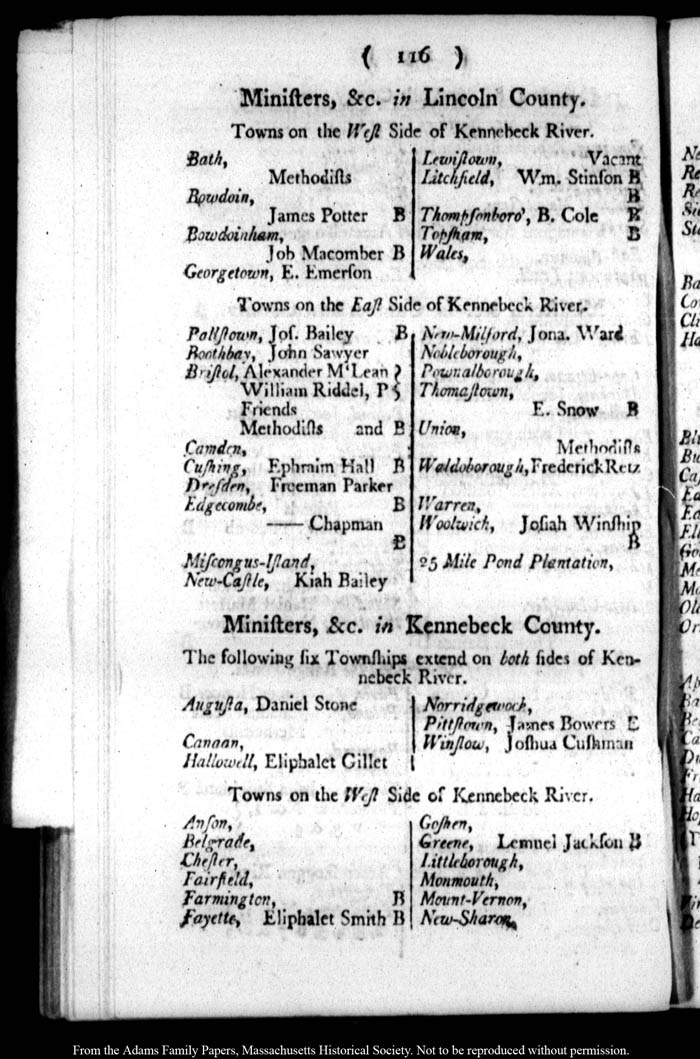 ( 116 )
Miniſters, &c. in Lincoln County.
Towns on the Weſt Side of Kennebeck River.
Bath,
Methodiſts
Bowdoin,
James Potter B
Bowdoinham,
Job Macomber B
Georgetown, E. Emerſon
Lewiſtown, Vacant
Litchfield, Wm. Stinſon B
B
Thompſonboro', B. Cole B
Topſham, B
Wales,
Towns on the Eaſt Side of Kennebeck River.
Ballſtown, Joſ. Bailey B
Boothbay, John Sawyer
Briſtol, Alexander M'Lean }
William Riddel, P }
Friends
Methodiſts and B
Camden,
Cuſhing, Ephraim Hall B
Dreſden, Freeman Parker
Edgecombe, B
—— Chapman
B
Miſcongus-Iſland,
New-Caſtle, Kiah Bailey
New-Milford, Jona. Ward
Nobleborough,
Pownalborough,
Thomaſtown,
E. Snow B
Union,
Methodiſts
Waldoborough, Frederick Retz
Warren,
Woolwich, Joſiah Winſhip
B
25 Mile Pond Plantation,
Miniſters, &c. in Kennebeck County.
The following ſix Townſhips extend on both ſides of Ken-
nebeck River.
Auguſta, Daniel Stone
Canaan,
Hallowell, Eliphalet Gillet
Norridgewock,
Pittſtown, James Bowers E
Winſlow, Joſhua Cuſhman
Towns on the Weſt Side of Kennebeck River.
Anſon,
Belgrade,
Cheſter,
Fairfield,
Farmington, B
Fayette, Eliphalet Smith B
Goſhen,
Greene, Lemuel Jackſon B
Littleborough,
Monmouth,
Mount-Vernon,
New-Sharon,
From the Adams Family Papers, Massachusetts Historical Society. Not to be reproduced without permission.